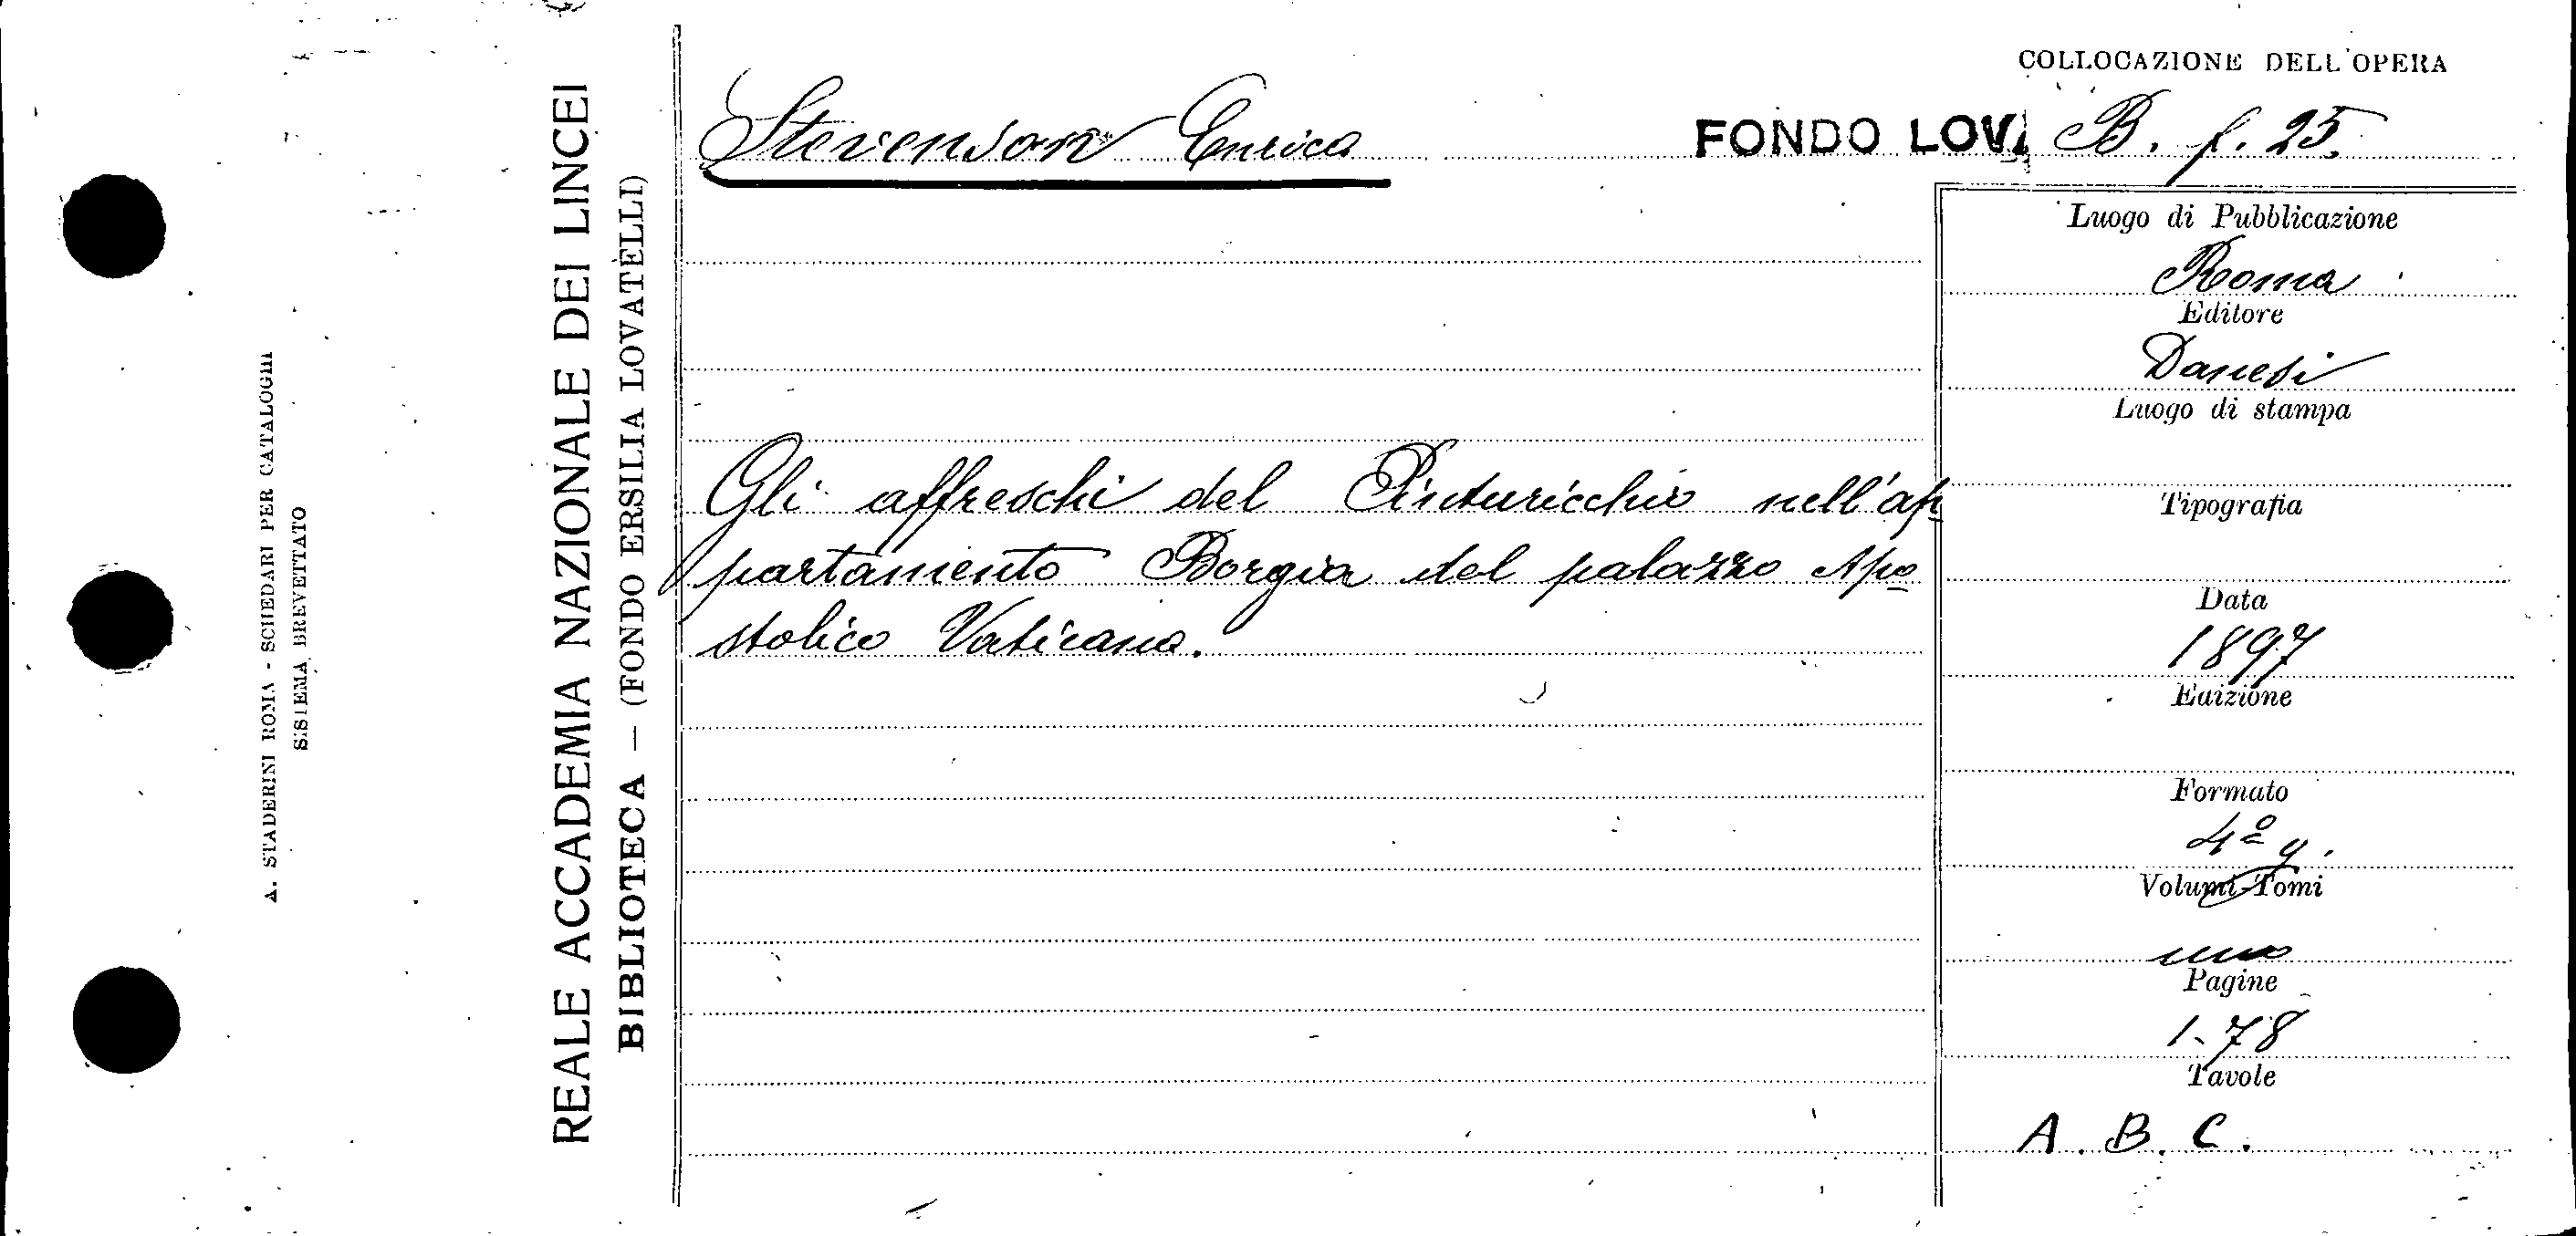 A. STADERINI ROMA - SCHEDARI PER CATALOGHI
SISTEMA BREVETTATO
REALE ACCADEMIA NAZIONALE DEI LINCEI
BIBLIOTECA — (FONDO ERSILIA LOVATELLI)
COLLOCAZIONE DELL'OPERA
Stevenson Enrico
FONDO LOVA B. f. 25.
Gli affreschi del Pinturicchio nell'ap
partamento Borgia del palazzo Apo
stolico Vaticano.
Luogo di Pubblicazione
Roma
Editore
Danesi
Luogo di stampa
Tipografia
Data
1897
Edizione
Formato
4º g.
Volumi-Tomi
uno
Pagine
1-78
Tavole
A. B. C.